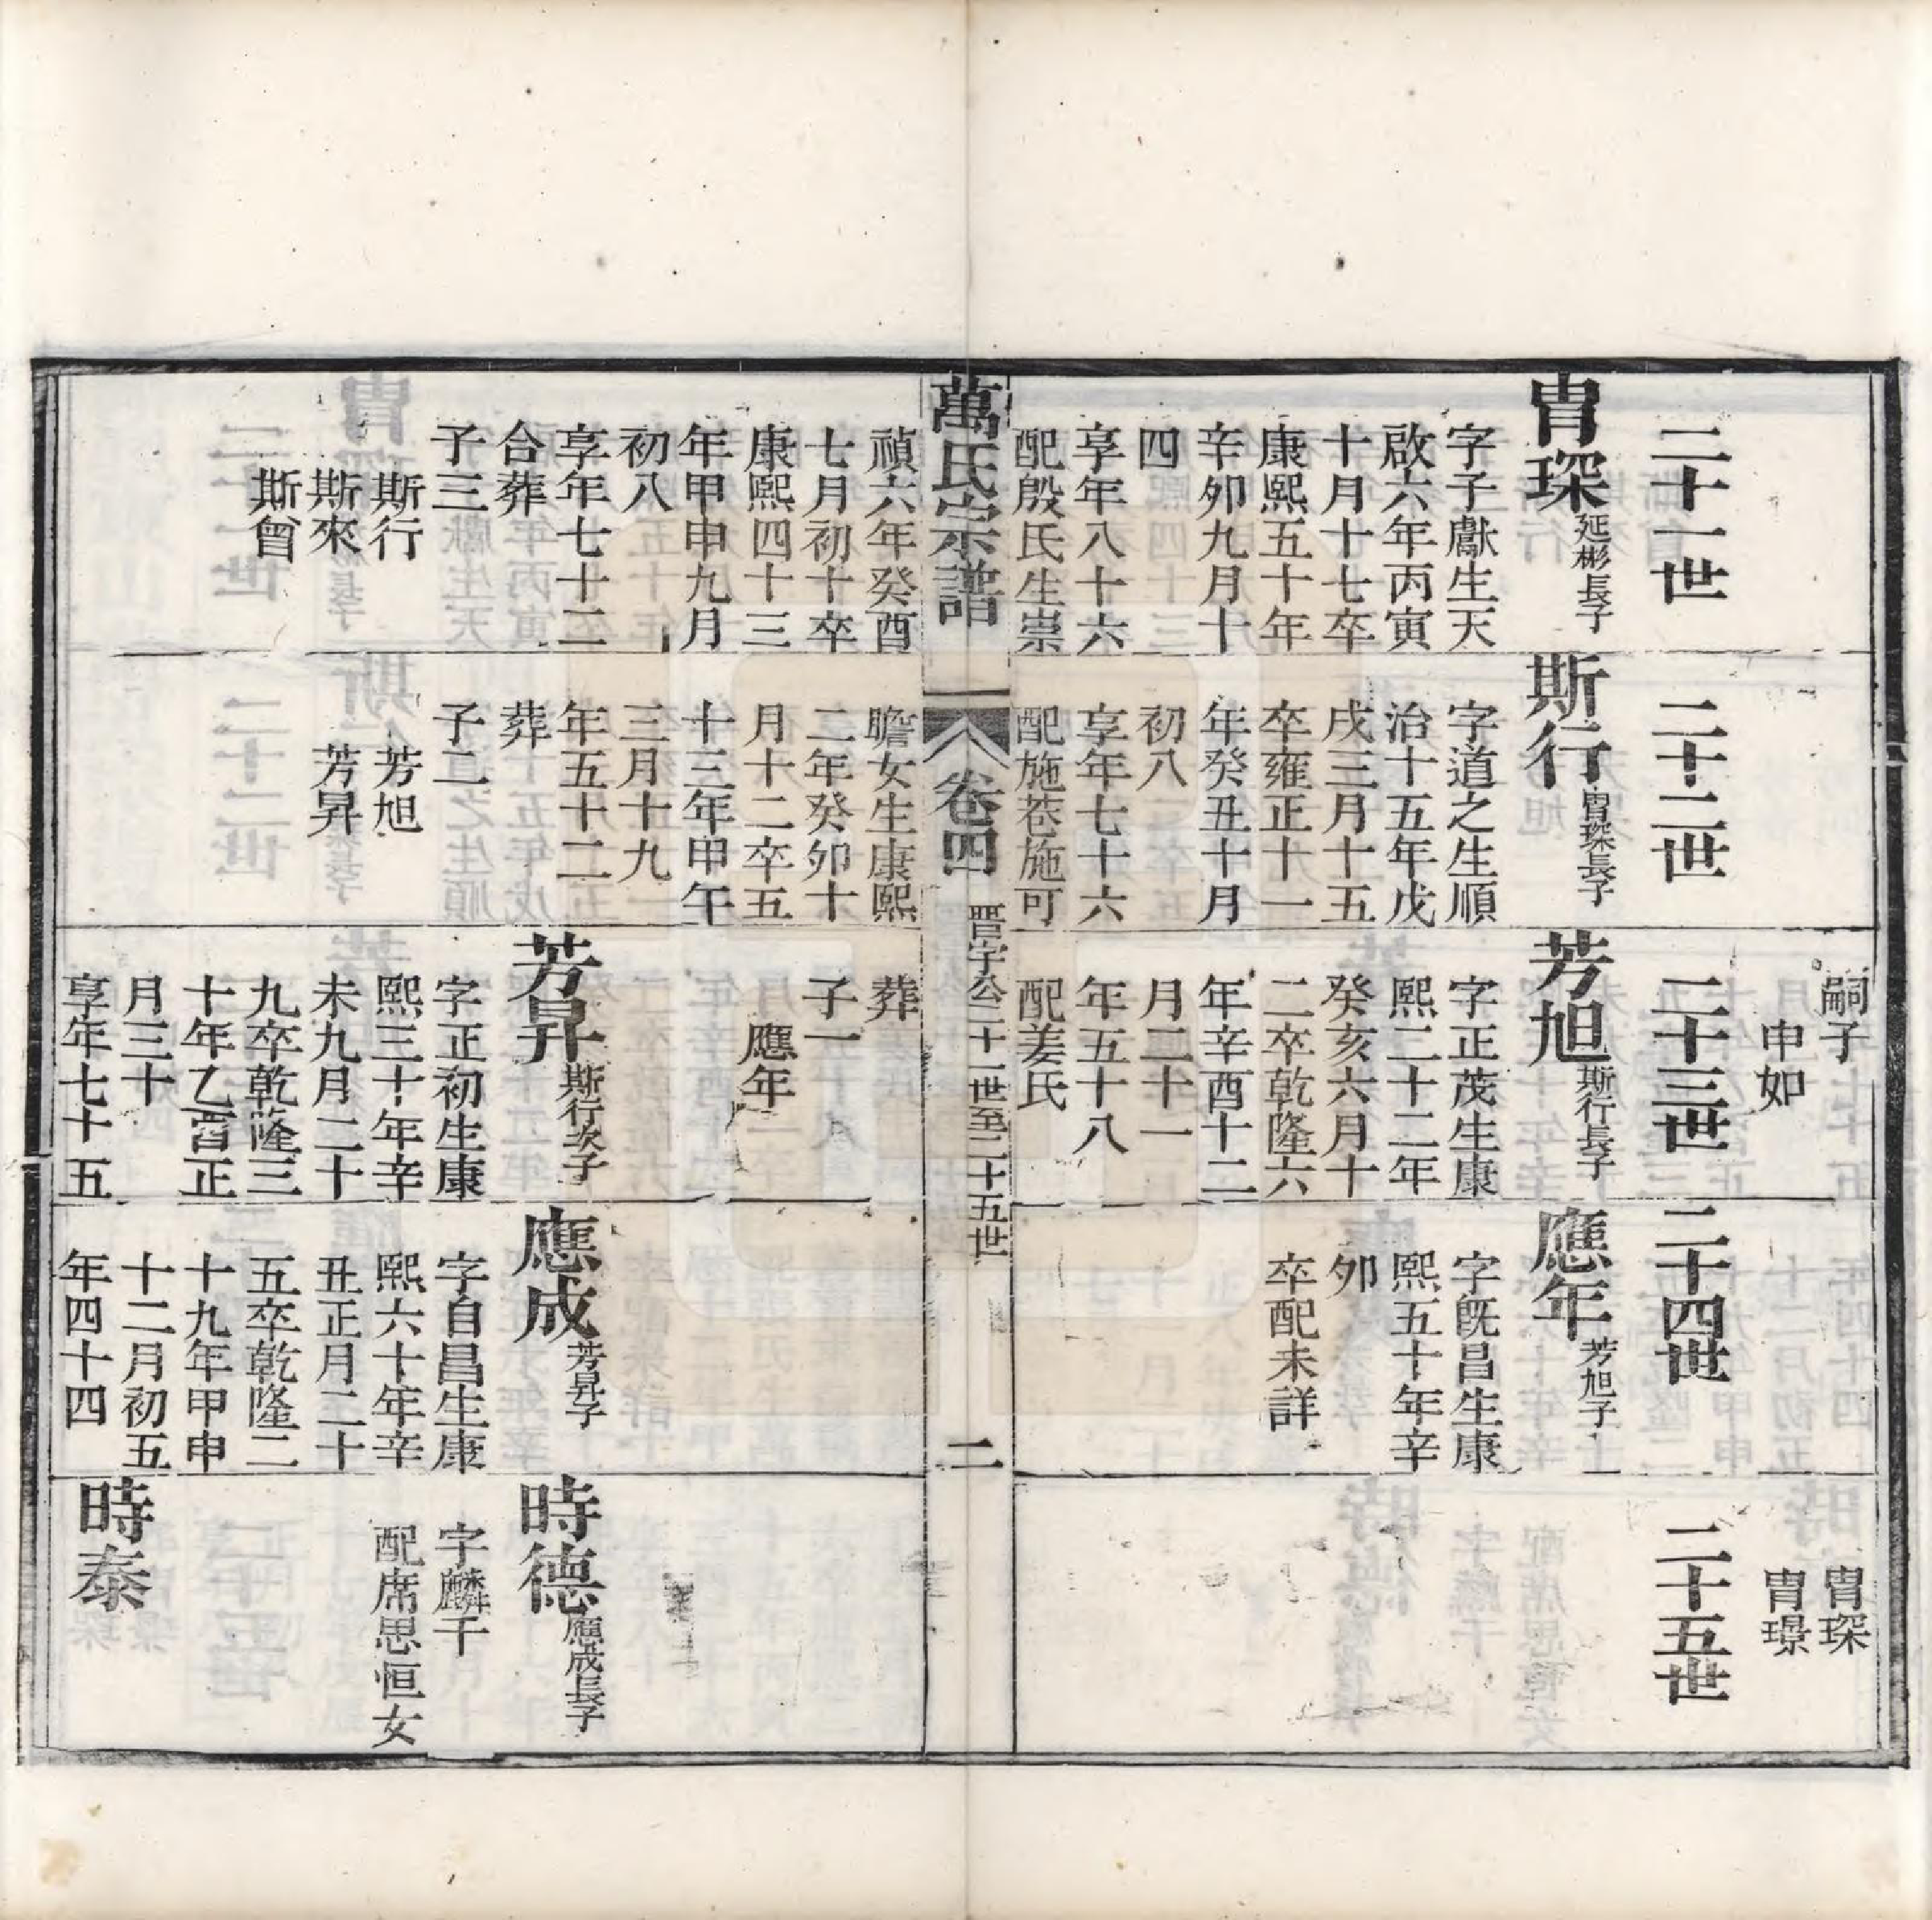 二十一世
冑琛
延彬長子
字子獻生天
啟六年丙寅
十月十七卒
康熙五十年
辛夘九月十
四
享年八十六
配殷氏生崇
禎六年癸酉
七月初十卒
康熙四十三
年甲申九月
初八
享年七十二
合葬
子三
斯行
斯來
斯曾
二十二世
斯行
冑琛長子
字道之生順
治十五年戊
戌三月十五
卒雍正十一
年癸丑十月
初八
享年七十六
配施茖施可
瞻女生康熙
二年癸夘十
月十二卒五
十三年甲午
三月十九
年五十二
葬
子二
芳旭
芳昇
嗣子
申如
二十三世
芳旭
斯行長子
字正茂生康
熙二十二年
癸亥六月十
二卒乾隆六
年辛酉十二
月二十一
年五十八
配姜氏
葬
子一
應年
芳昇
斯行次子
字正初生康
熙三十年辛
未九月二十
九卒乾隆三
十年乙酉正
月三十
享年七十五
二十四世
應年
芳旭子
字旣昌生康
熙五十年辛
夘
卒配未詳
應成
芳昇子
字自昌生康
熙六十年辛
丑正月二十
五卒乾隆二
十九年甲申
十二月初五
年四十四
冑琛
冑璟
二十五世
時德
應成長子
字麟千
配席思恒女
時泰
萬氏宗譜
卷四
晋字公二十一世至二十五世
二